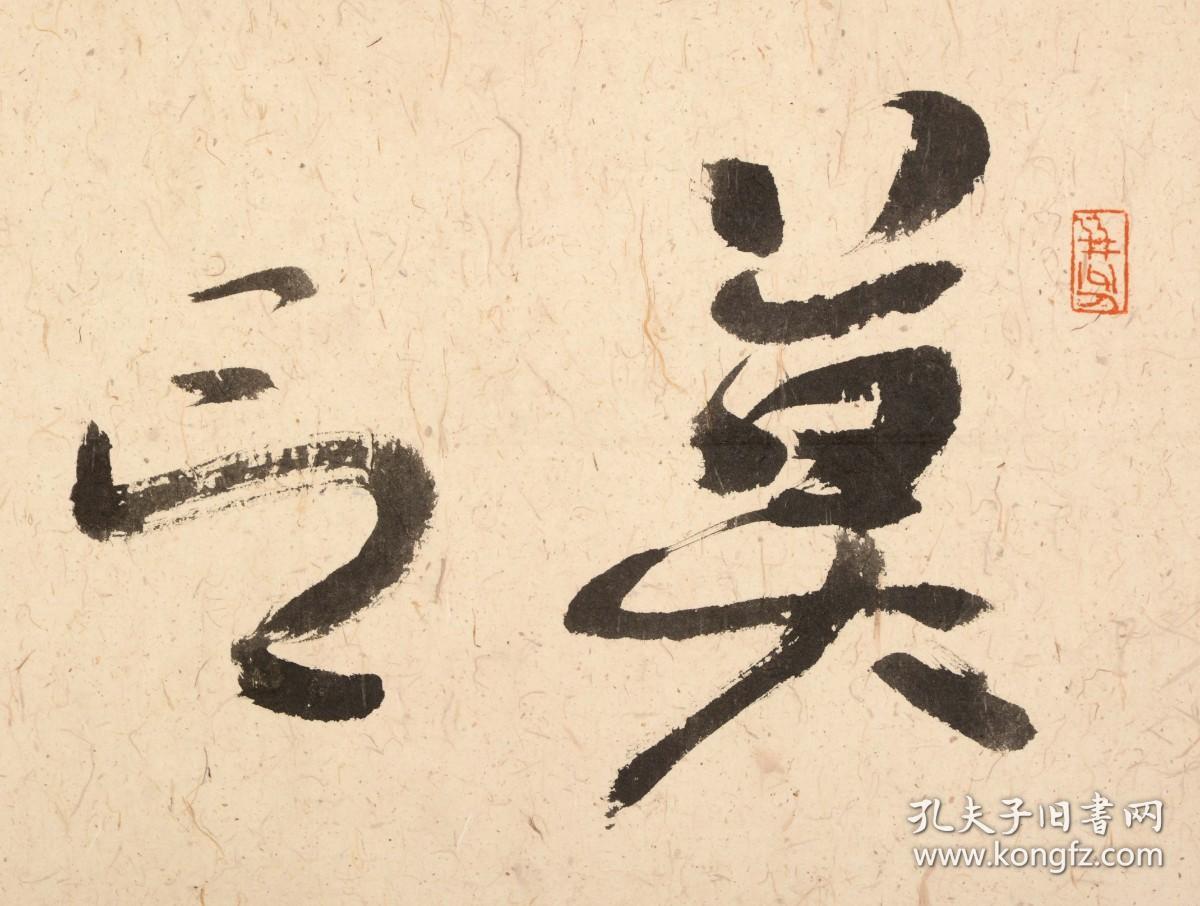 莫言
孔夫子旧書网
www.kongfz.com